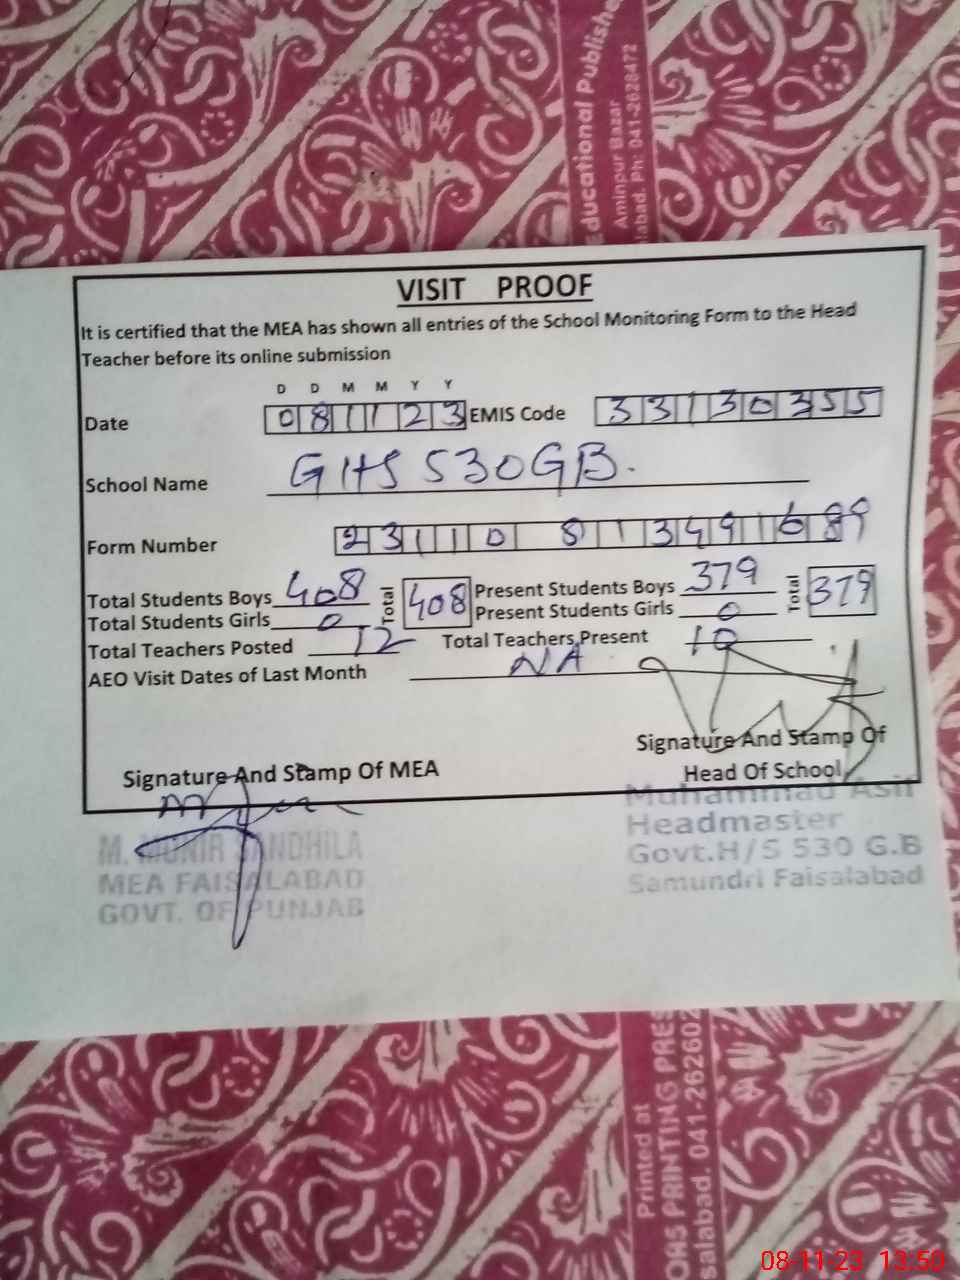 Educational Publishe
Aminpur Bazar
labad. Ph: 041-2628472
VISIT PROOF
It is certified that the MEA has shown all entries of the School Monitoring Form to the Head
Teacher before its online submission
D D M M Y Y
Date 081123 EMIS Code 33130355
School Name GHS 530GB.
Form Number 23110 813491689
Total Students Boys 408 Total 408 Present Students Boys 379 Total 379
Total Students Girls 0 Present Students Girls 0
Total Teachers Posted 12 Total Teachers Present 10
AEO Visit Dates of Last Month NA
Signature And Stamp Of
Head Of School
Signature And Stamp Of MEA
Muhammad Asif
Headmaster
Govt.H/S 530 G.B
Samundri Faisalabad
M. MUNIR SANDHILA
MEA FAISALABAD
GOVT. OF PUNJAB
Printed at
PRINTING PRES
salabad. 041-262602
08-11-23 13:50